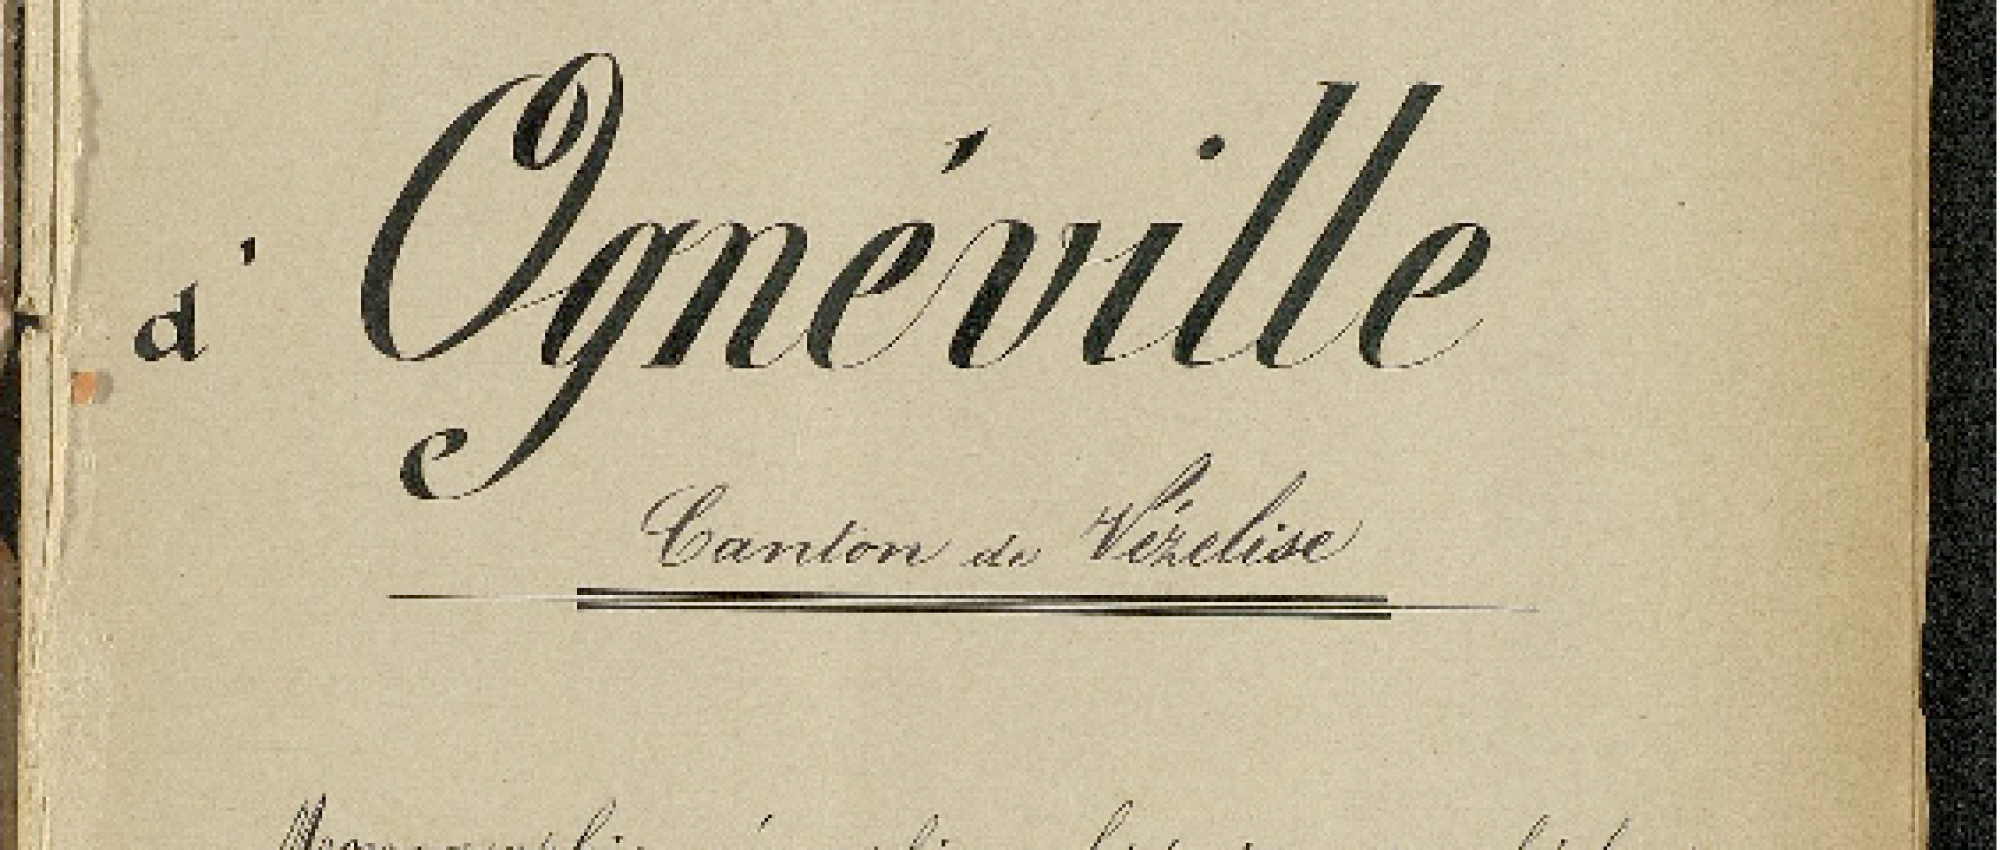 d' Ognéville
Canton de Vézelise
Monographie